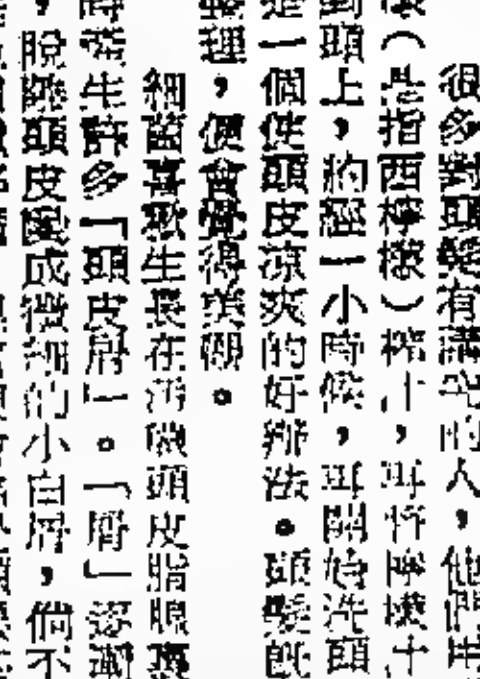 很多對頭髮有講究的人，他們
（是指西檸檬）榨汁，再將檸檬汁
到頭上，約經一小時候，再開始洗頭
是一個使頭皮涼爽的好辦法。頭髮既
整理，便會覺得美觀。
細菌喜歡生長在污穢頭皮脂腺
時發生許多「頭皮屑」。「屑」逐漸
，脫離頭皮變成微細的小白屑，倘不